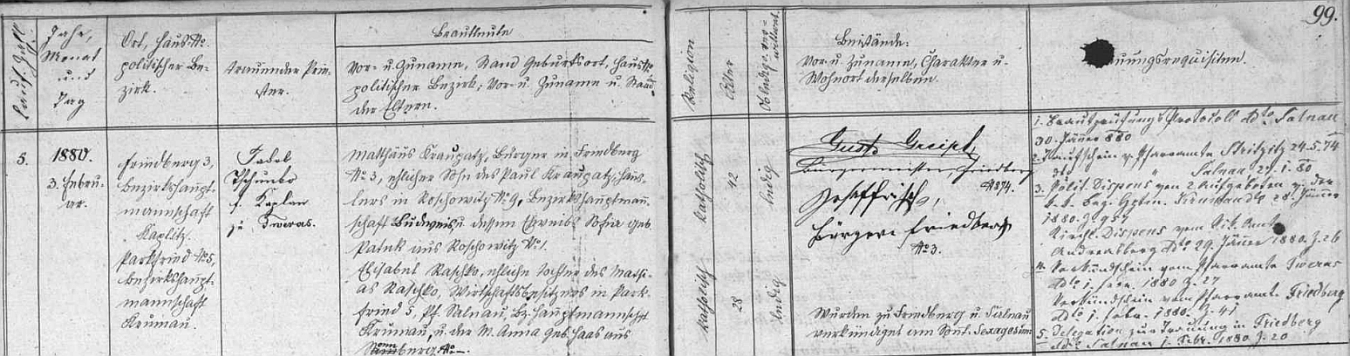 99.
Lauf. Zahl
Jahr,
Monat
und
Tag
Ort, Haus-No
politischer Be-
zirk.
trauender Prie-
ster.
Brautleute
Vor- u. Zuname, Stand, Geburtsort, Haus No
politischer Bezirk, Vor- u. Zuname u. Stand
der Eltern.
Religion
Alter
Beistände.
Vor- u. Zuname, Charakter u.
Wohnort derselben.
5.
1880.
3. Febru-
ar.
Friedberg 3,
Bezirkshaupt-
mannschaft
Kaplitz.
Parkfried No 5,
Bezirkshaupt-
mannschaft
Krumau.
Kaplan
Matthäus Kraupatz, Bürger in Friedberg
No 3, ehlicher Sohn des Paul Kraupatz, Häus-
lers in Roschowitz No 9, Bezirkshauptman-
schaft Budweis u. dessen Eheweib Sofia geb.
aus Roschowitz No 1.
Elisabet Raschko, ehliche Tochter des Mathi-
as Raschko, Wirtschaftsbesitzers in Park-
fried 5, Pf. Salnau, Bz. Hauptmannschaft
Krumau, u. der M. Anna geb. Haas aus
katholisch
42
ledig
katholisch
28
ledig
Bürgermeister, Friedberg
No 3.
Wurden zu Friedberg u. Salnau
verkündiget am Sont. Sexagesima
1. Brautprüfungs Protokoll dto Salnau
30. Jänner 880
2. Taufschein v. Pfarramte Stritzitz 24.5.74
Salnau
3. Polit. Dispens von 2 Aufgeboten v. der
k. k. Bez. Hptm. Krumau dto 28. Jänner
1880. Z.
Andreasberg dto 29. Jänner 1880. Z. 26
4. Verkündschein vom Pfarramte
dto 1. Febr. 1880 Z. 27
Verkündschein vom Pfarramte Friedberg
dto 1. Febr. 1880. Z. 41
5. Delegation zur Trauung in Friedberg
dto Salnau 1. Febr. 1880 Z. 20